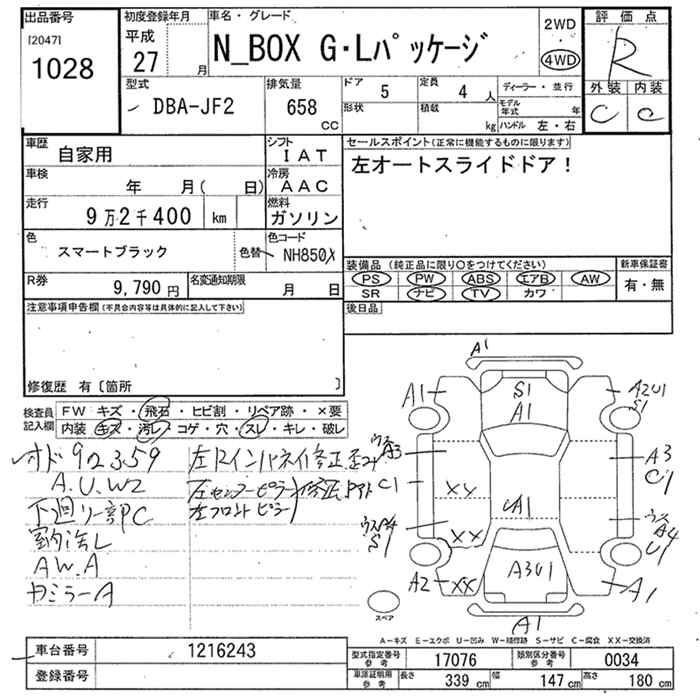 出品番号
[2047]
1028
初度登録年月
平成
27 月
車名・グレード
N_BOX G・Lパッケージ
2WD
4WD
評価点
R
外装 内装
C C
型式
DBA-JF2
排気量
658
CC
ドア
5
定員
4 人
形状
積載
kg
ディーラー・並行
モデル年式 年
ハンドル 左・右
車歴
自家用
シフト
IAT
車検
年 月( 日)
冷房
AAC
走行
9万2千400 km
燃料
ガソリン
色
スマートブラック
色替
色コード
NH850X
R券
9,790 円
名変通知期限
月 日
セールスポイント(正常に機能するものに限ります)
左オートスライドドア!
装備品 (純正品に限り○をつけてください)
PS PW ABS エアB AW
SR ナビ TV カワ
新車保証書
有・無
後日品
注意事項申告欄(不具合内容等は具体的に記入して下さい)
修復歴 有〔箇所 〕
検査員記入欄
FW キズ・飛石・ヒビ割・リペア跡・×要
内装 キズ・汚レ・コゲ・穴・スレ・キレ・破レ
オド92359
A.U.W2
下廻リ一部PC
AW.A
カミラーA
左センターピラー
左フロントピラー
A1
A1
S1
A1
A2U1
S1
ウス
A3
C1
A3
C1
XX
A1
ウスA4
S1
XX
ウス
A4
U1
A2
XX
A3U1
A1
A1
スペア
A-キズ E-エクボ U-凹み W-補修跡 S-サビ C-腐食 XX-交換済
車台番号
1216243
登録番号
型式指定番号
参考
17076
類別区分番号
参考
0034
車庫証明用
参考
長さ
339 cm
幅
147 cm
高さ
180 cm